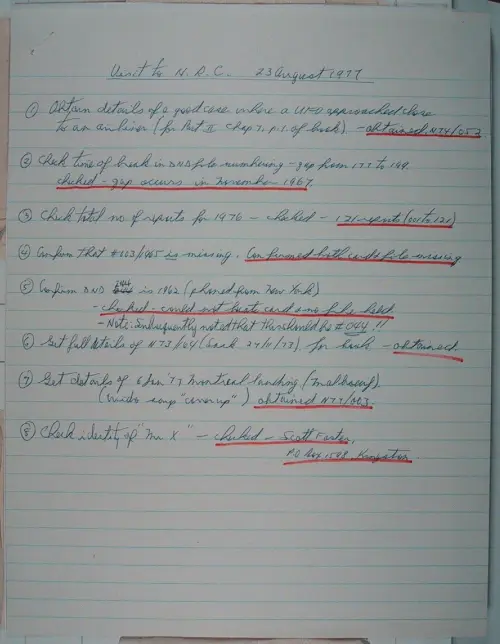 Visit to N.R.C. 23 August 1977
① Obtain details of a good case where a UFO approached close
to an airliner (for Part II Chap 7, p.1. of book). - obtained N74/052
② Check time of break in DND file numbering - gap from 177 to 199.
checked - gap occurs in November 1967.
③ Check total no of reports for 1976 - checked - 121 reports (001 to 121)
④ Confirm that #003/1965 is missing. Confirmed both card & file missing
⑤ Confirm DND is 1962 (phoned from New York)
- checked: could not locate card & no file held
- Note: Subsequently noted that this should be #044!!
⑥ Get full details of N73/ (Sack 24/11/73) for book - obtained.
⑦ Get details of 6 Jan '77 Montreal landing (Malboeuf)
(wider soup "cover up") obtained N77/003.
⑧ Check identity of "Mr X" - checked - Scott Foster,
P.O Box 1548, Kingston.